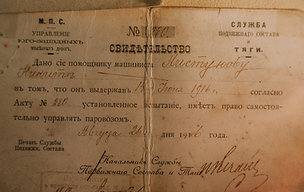 М. П. С.
УПРАВЛЕНІЕ
ЮГО-ЗАПАДНЫХЪ
желѣзныхъ дорогъ.
СЛУЖБА
ПОДВИЖНАГО СОСТАВА
и
ТЯГИ.
№
СВИДѢТЕЛЬСТВО
Дано сіе помощнику машиниста
въ томъ, что онъ выдержалъ Іюня 1916 г. согласно
Акту № 220 установленное испытаніе, имѣетъ право самостоя-
тельно управлять паровозомъ.
Августа дня 1916 года.
Печать Службы
Подвижн. Состава
Начальникъ Службы
Подвижного Состава и Тяги